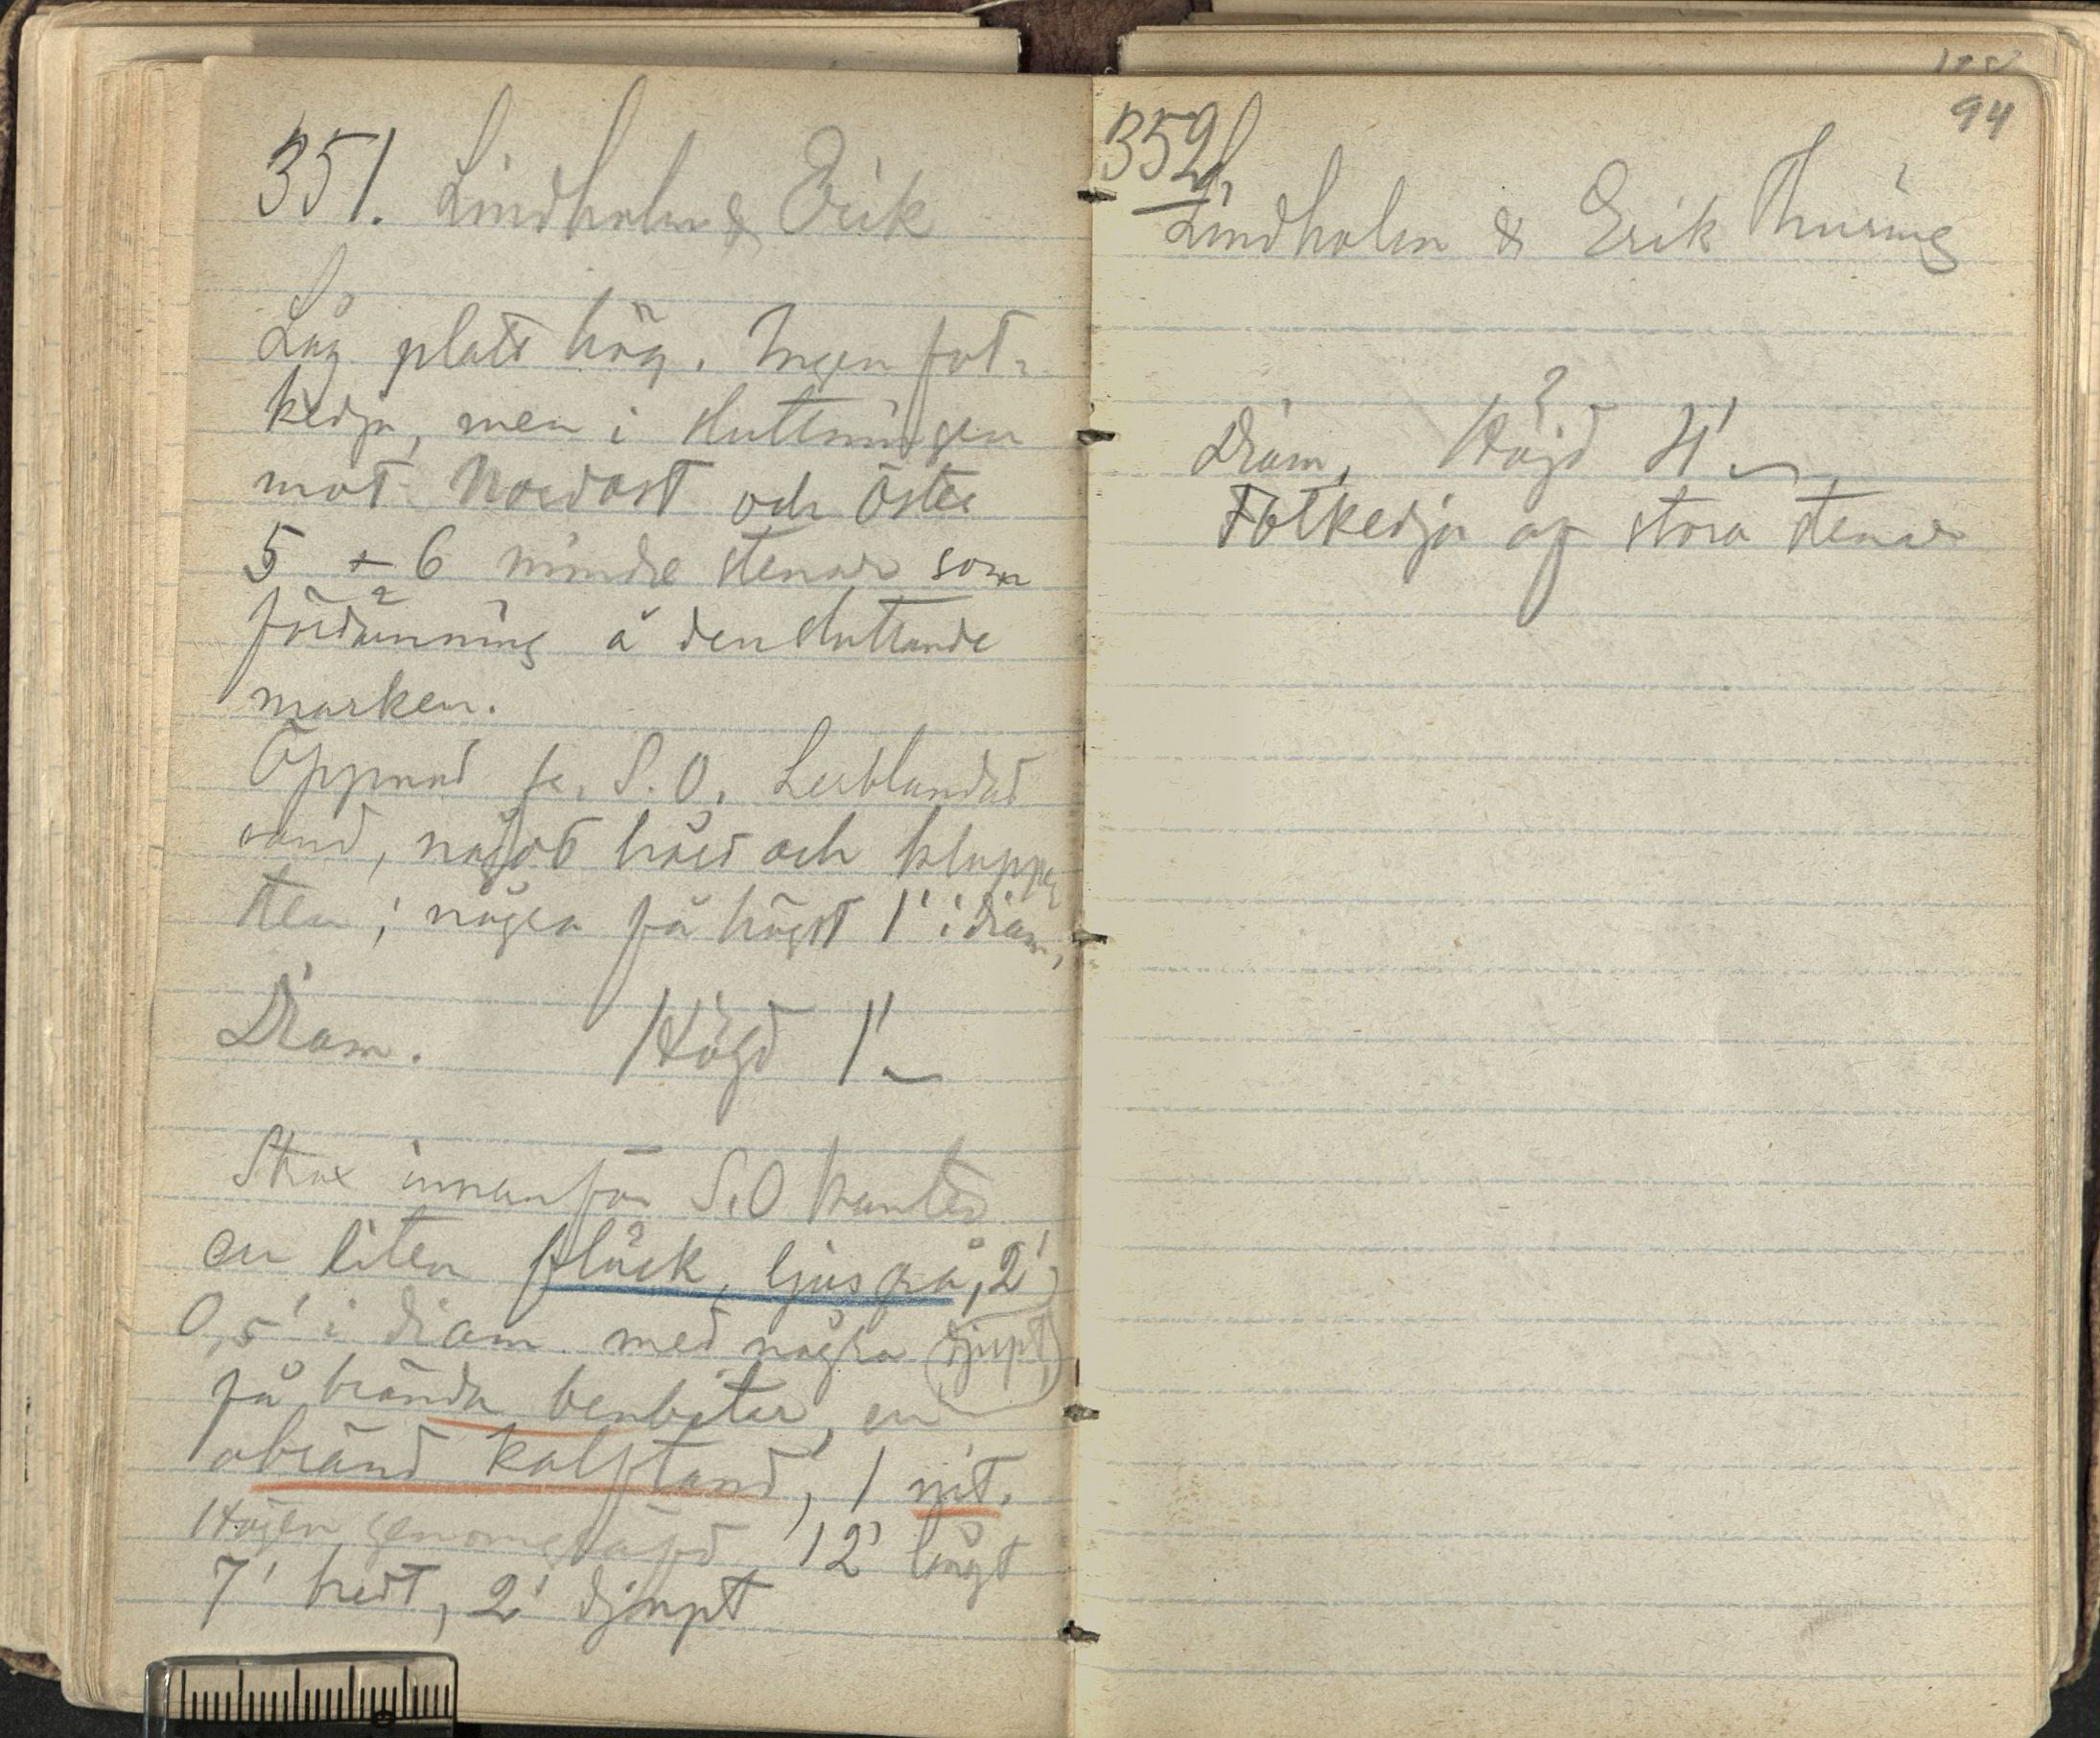 351. Lindholm & Erik
Låg platt hög. Ingen fot-
kedja, men i sluttningen
mot Nordost och Öster
5 + 6 mindre stenar som
fördämning å den sluttande
marken.
Öppnad fr. S.O. Lerblandad
sand, något hård och klapper
sten; några få högst 1' i diam,
Diam. Högd 1'
Strax innanför S.O kanten
en liten fläck, ljusgrå, 2'
0,5' i diam med några (djupt)
få brända benbitar, en
obränd kalftand, 1 nit.
Högen genomgräfd 12' långt
7' bredt, 2' djupt
94
352.
Lindholm & Erik Thuring
Diam, Höjd 4'
Fotkedja af stora stenar